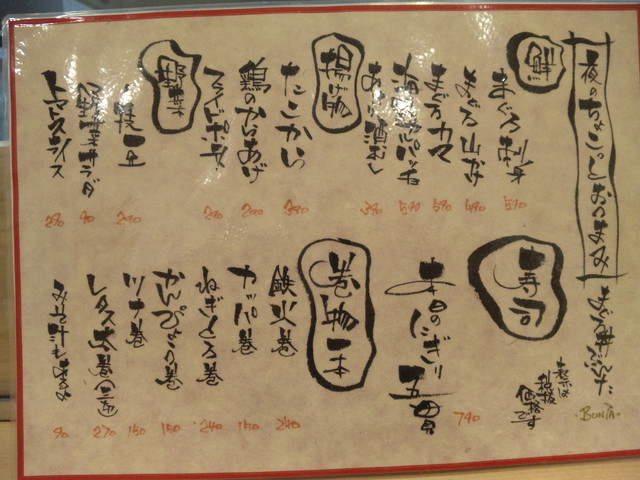 夜のちょこっとおつまみ
まぐろ丼ぶんた
BUNTA
表示は
税抜
価格
です
鮮
まぐろ刺身 590
まぐろ山かけ 490
まぐろカマ 590
590
あさり酒むし 390
揚げ物
たこからい 390
鶏のからあげ 290
フライドポテト 290
野菜
枝豆 290
野菜サラダ 90
トマトスライス 290
寿司
本日のにぎり五貫 790
巻物一本
鉄火巻 240
カッパ巻 150
ねぎとろ巻 240
かんぴょう巻 150
ツナ巻 150
レタス太巻 270
みそ汁 90